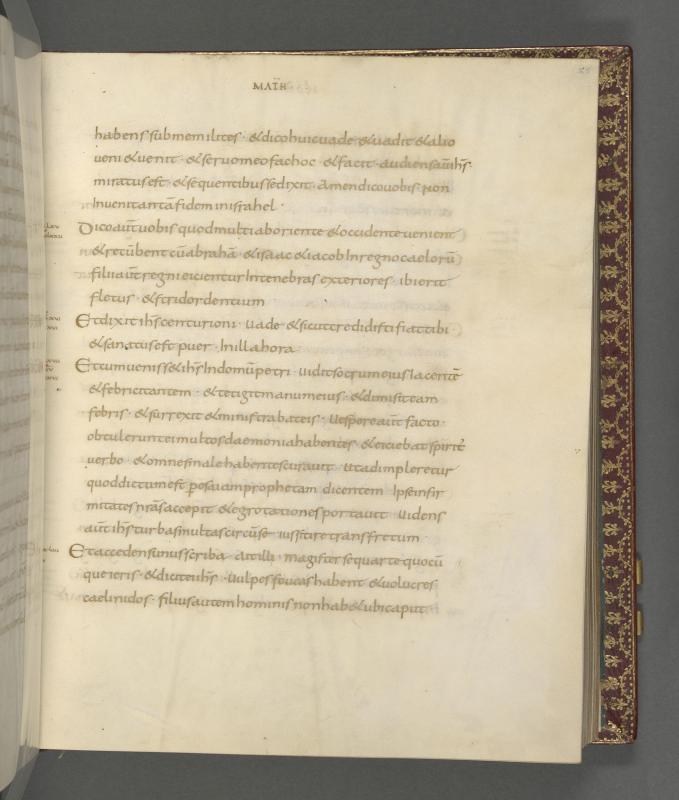 MATH
habens sub me milites · & dico huic uade & uadit & alio
ueni & uenit · & seruo meo fac hoc · & facit · audiens aut̄ ih̄s
miratus est · & sequentibus se dixit · Amen dico uobis · non
Inueni tantā fidem in israhel ·
Dico aut̄ uobis quod multi ab oriente & occidente uenient
& recūbent cū abrahā · & isaac & iacob In regno caelorū
filii aut̄ regni eicientur In tenebras exteriores · ibi erit
fletus · & stridor dentium
Et dixit ih̄s centurioni · uade · & sicut credidisti fiat tibi ·
& sanatus est puer · In illa hora
Et cum uenisset ih̄s In domū petri · uidit socrum eius Iacentē
& febricitantem · & tetigit manum eius · & dimisit eam
febris · & surrexit & ministrabat eis · Uespere aut̄ facto ·
obtulerunt ei multos daemonia habentes · & eiciebat spiritē
uerbo · & omnes male habentes curauit · Ut adimpleretur
quod dictum est per esaiam prophetam dicentem Ipse infir
mitates nr̄as accepit & egrotationes portauit · Uidens
aut̄ ih̄s turbas multas circū se iussit ire trans fretum
Et accedens unus scriba · ait illi · magister sequar te quocū
que ieris · & dicit ei ih̄s · Uulpes foueas habent & uolucres
caeli nidos · filius autem hominis non hab& ubi caput